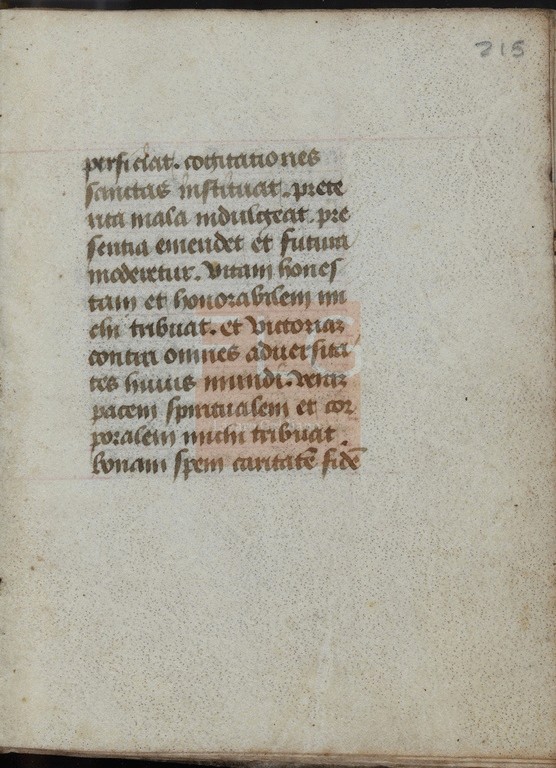 215
perficiat. cogitationes
sanctas instituat. prete
rita mala indulgeat. pre
sentia emendet et futura
moderetur. Vitam hones
tam et honorabilem mi
chi tribuat. et victoriam
contra omnes aduersita
tes huius mundi. veram
pacem spiritualem et cor
poralem michi tribuat.
bonam spem caritatē fidē